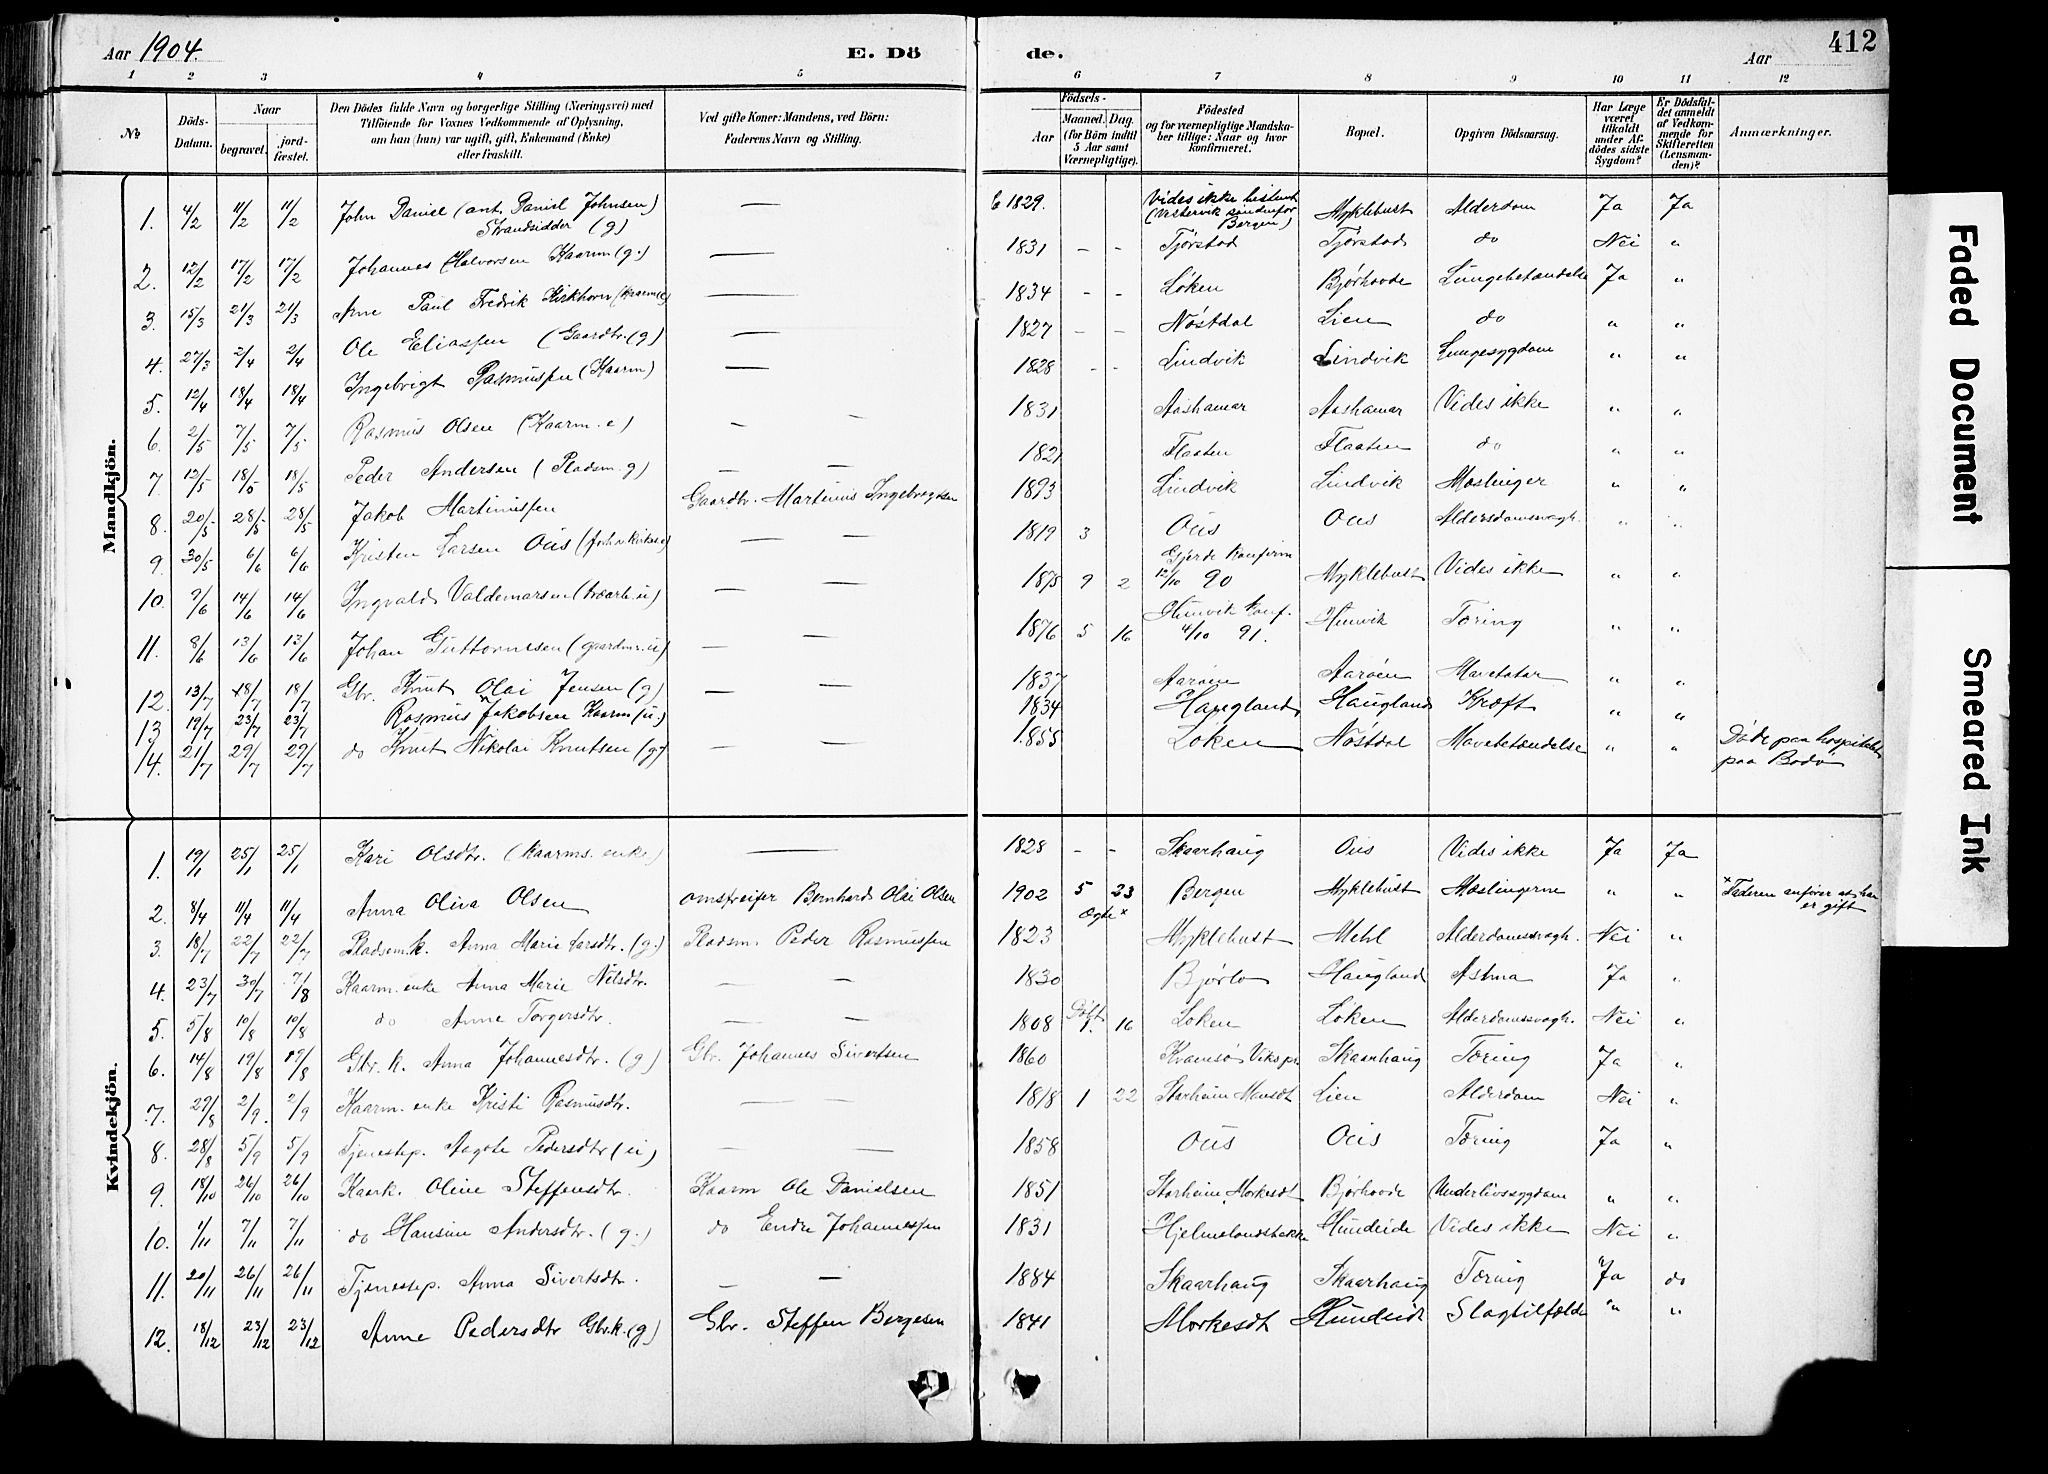 Aar 1904.
E. Dö
de.
Aar
412
1 2 3 4 5 6 7 8 9 10 11 12
No
Döds-Datum.
Naar begravet.
jord-fæstet.
Den Dödes fulde Navn og borgerlige Stilling (Næringsvei) med
Tilföiende for Voxnes Vedkommende af Oplysning,
om han (hun) var ugift, gift, Enkemand (Enke)
eller fraskilt.
Ved gifte Koner: Mandens, ved Börn:
Faderens Navn og Stilling.
Födsels-
Aar
Maaned. Dag.
(for Börn indtil
5 Aar samt
Værnepligtige).
Födested
og for værnepligtige Mandska-
ber tillige: Naar og hvor
konfirmeret.
Bopæl.
Opgiven Dödsaarsag.
Har Læge
været
tilkaldt
under Af-
dödes sidste
Sygdom?
Er Dödsfal-
det anmeldt
af Vedkom-
mende for
Skifteretten
(Lensman-
den)?
Anmærkninger.
Mandkjön.
1. 4/2 11/2 11/2 John Daniel (ant. Daniel Johnsen) Strandsidder (g) — 1829. Vides ikke bestemt (Vestervik søndenfor Bergen) Myklebust Alderdom Ja Ja
2. 12/2 17/2 17/2 Johannes Halvorsen Kaarm (g.) — 1831 - - Tjørstad Tjørstad do Nei "
3. 15/3 21/3 21/3 Arne Paul Fredrik Kirkhorn (Kaarm e) — 1834 - - Løken Bjørhovde Lungebetændelse Ja "
4. 27/3 2/4 2/4 Ole Eliassen (Gaardbr. (g) — 1827 - - Nøstdal Lien do " "
5. 12/4 18/4 18/4 Ingebrigt Rasmussen (Kaarm) — 1828 - - Lindvik Lindvik Lungesygdom " "
6. 2/5 7/5 7/5 Rasmus Olsen (Kaarm. e) — — 1831 Aashamar Aashamar Vides ikke " "
7. 12/5 18/5 18/5 Peder Andersen (Pladsm. g) — — 1821 Flaaten Flaaten do " "
8. 20/5 28/5 28/5 Jakob Martinussen Gaardbr. Martinus Ingebregtsen 1893 Lindvik Lindvik Mæslinger " "
9. 30/5 6/6 6/6 Kristen Larsen Ous — — 1819 3 Ous Ous Alderdomssvagh. " "
10. 9/6 14/6 14/6 Ingvald Valdemarsen — — 1875 9 2 Gjerde Konfirm 12/10 90 Myklebust Vides ikke " "
11. 8/6 13/6 13/6 Johan Guttormsen (gaardm. u) — — 1876 5 16 Hunvik konf. 4/10 91. Hunvik Tæring " "
12. 13/7 18/7 18/7 Gbr. Knut Olai Jensen (g) — — 1837 Aarøen Aarøen Mavekatar " "
13 19/7 23/7 23/7 Rasmus Jakobsen Kaarm (u.) 1834 Haugland Haugland Kræft " "
14. 21/7 29/7 29/7 do Knut Nikolai Knutsen (g) — — 1855 Løken Nøstdal Mavebetændelse " " Døde paa hospitalet paa Bodø
Kvindekjön.
1. 19/1 25/1 25/1 Kari Olsdtr. (Kaarms. enke) — 1828 - - Skaarhaug Ous Vides ikke Ja Ja
2. 8/4 11/4 11/4 Anna Oliva Olsen omstreifer Bernhard Olai Olsen 1902 5 23 Ægte x Bergen Myklebust Mæslingerne " " x Faderen anfører at han er gift
3. 18/7 22/7 22/7 Pladsem.k. Anna Marie Larsdtr. (g.) Pladsm. Peder Rasmussen 1823 Myklebust Mehl Alderdomssvagh. Nei "
4. 23/7 30/7 7/8 Kaarm. enke Anna Marie Nilsdtr. — — 1830 Bjørlo Haugland Astma Ja "
5. 5/8 10/8 10/8 do Anne Torgersdtr. — — 1808 Døbt 1. 16 Løken Løken Alderdomssvagh. Nei "
6. 14/8 19/8 19/8 Gbr. k. Anna Johannesdtr. (g) Gbr. Johannes Sivertsen 1860 Kvamsø Vikspr. Skaarhaug Tæring Ja "
7. 29/8 2/9. 2/9 Kaarm. enke Kristi Rasmusdtr. — — 1818 1 22 Storheim Lien Alderdom Nei "
8. 28/8 5/9 5/9 Tjenestep. Aagote Pedersdtr (u) — — 1858 Ous Ous Tæring Ja "
9. 18/10 26/10 26/10 Kaark. Oline Steffensdtr. Kaarm Ole Danielsen 1851 Storheim, Morkesdt Bjørhovde Underlivssygdom " "
10. 1/11 7/11 7/11 do Hansine Andersdtr. (g.) do Endre Johannessen 1831 Hjelmelandsbakke Hundeide Vides ikke Nei "
11. 20/11 26/11 26/11 Tjenestep. Anna Sivertsdtr. — — 1884 Skaarhaug Skaarhaug Tæring Ja do
12. 18/12 23/12 23/12 Anne Pedersdtr Gbr.k. (g) Gbr. Steffen Børgesen 1841 Morkesdt Hundeide Slagtilfælde " "
Faded Document
Smeared Ink